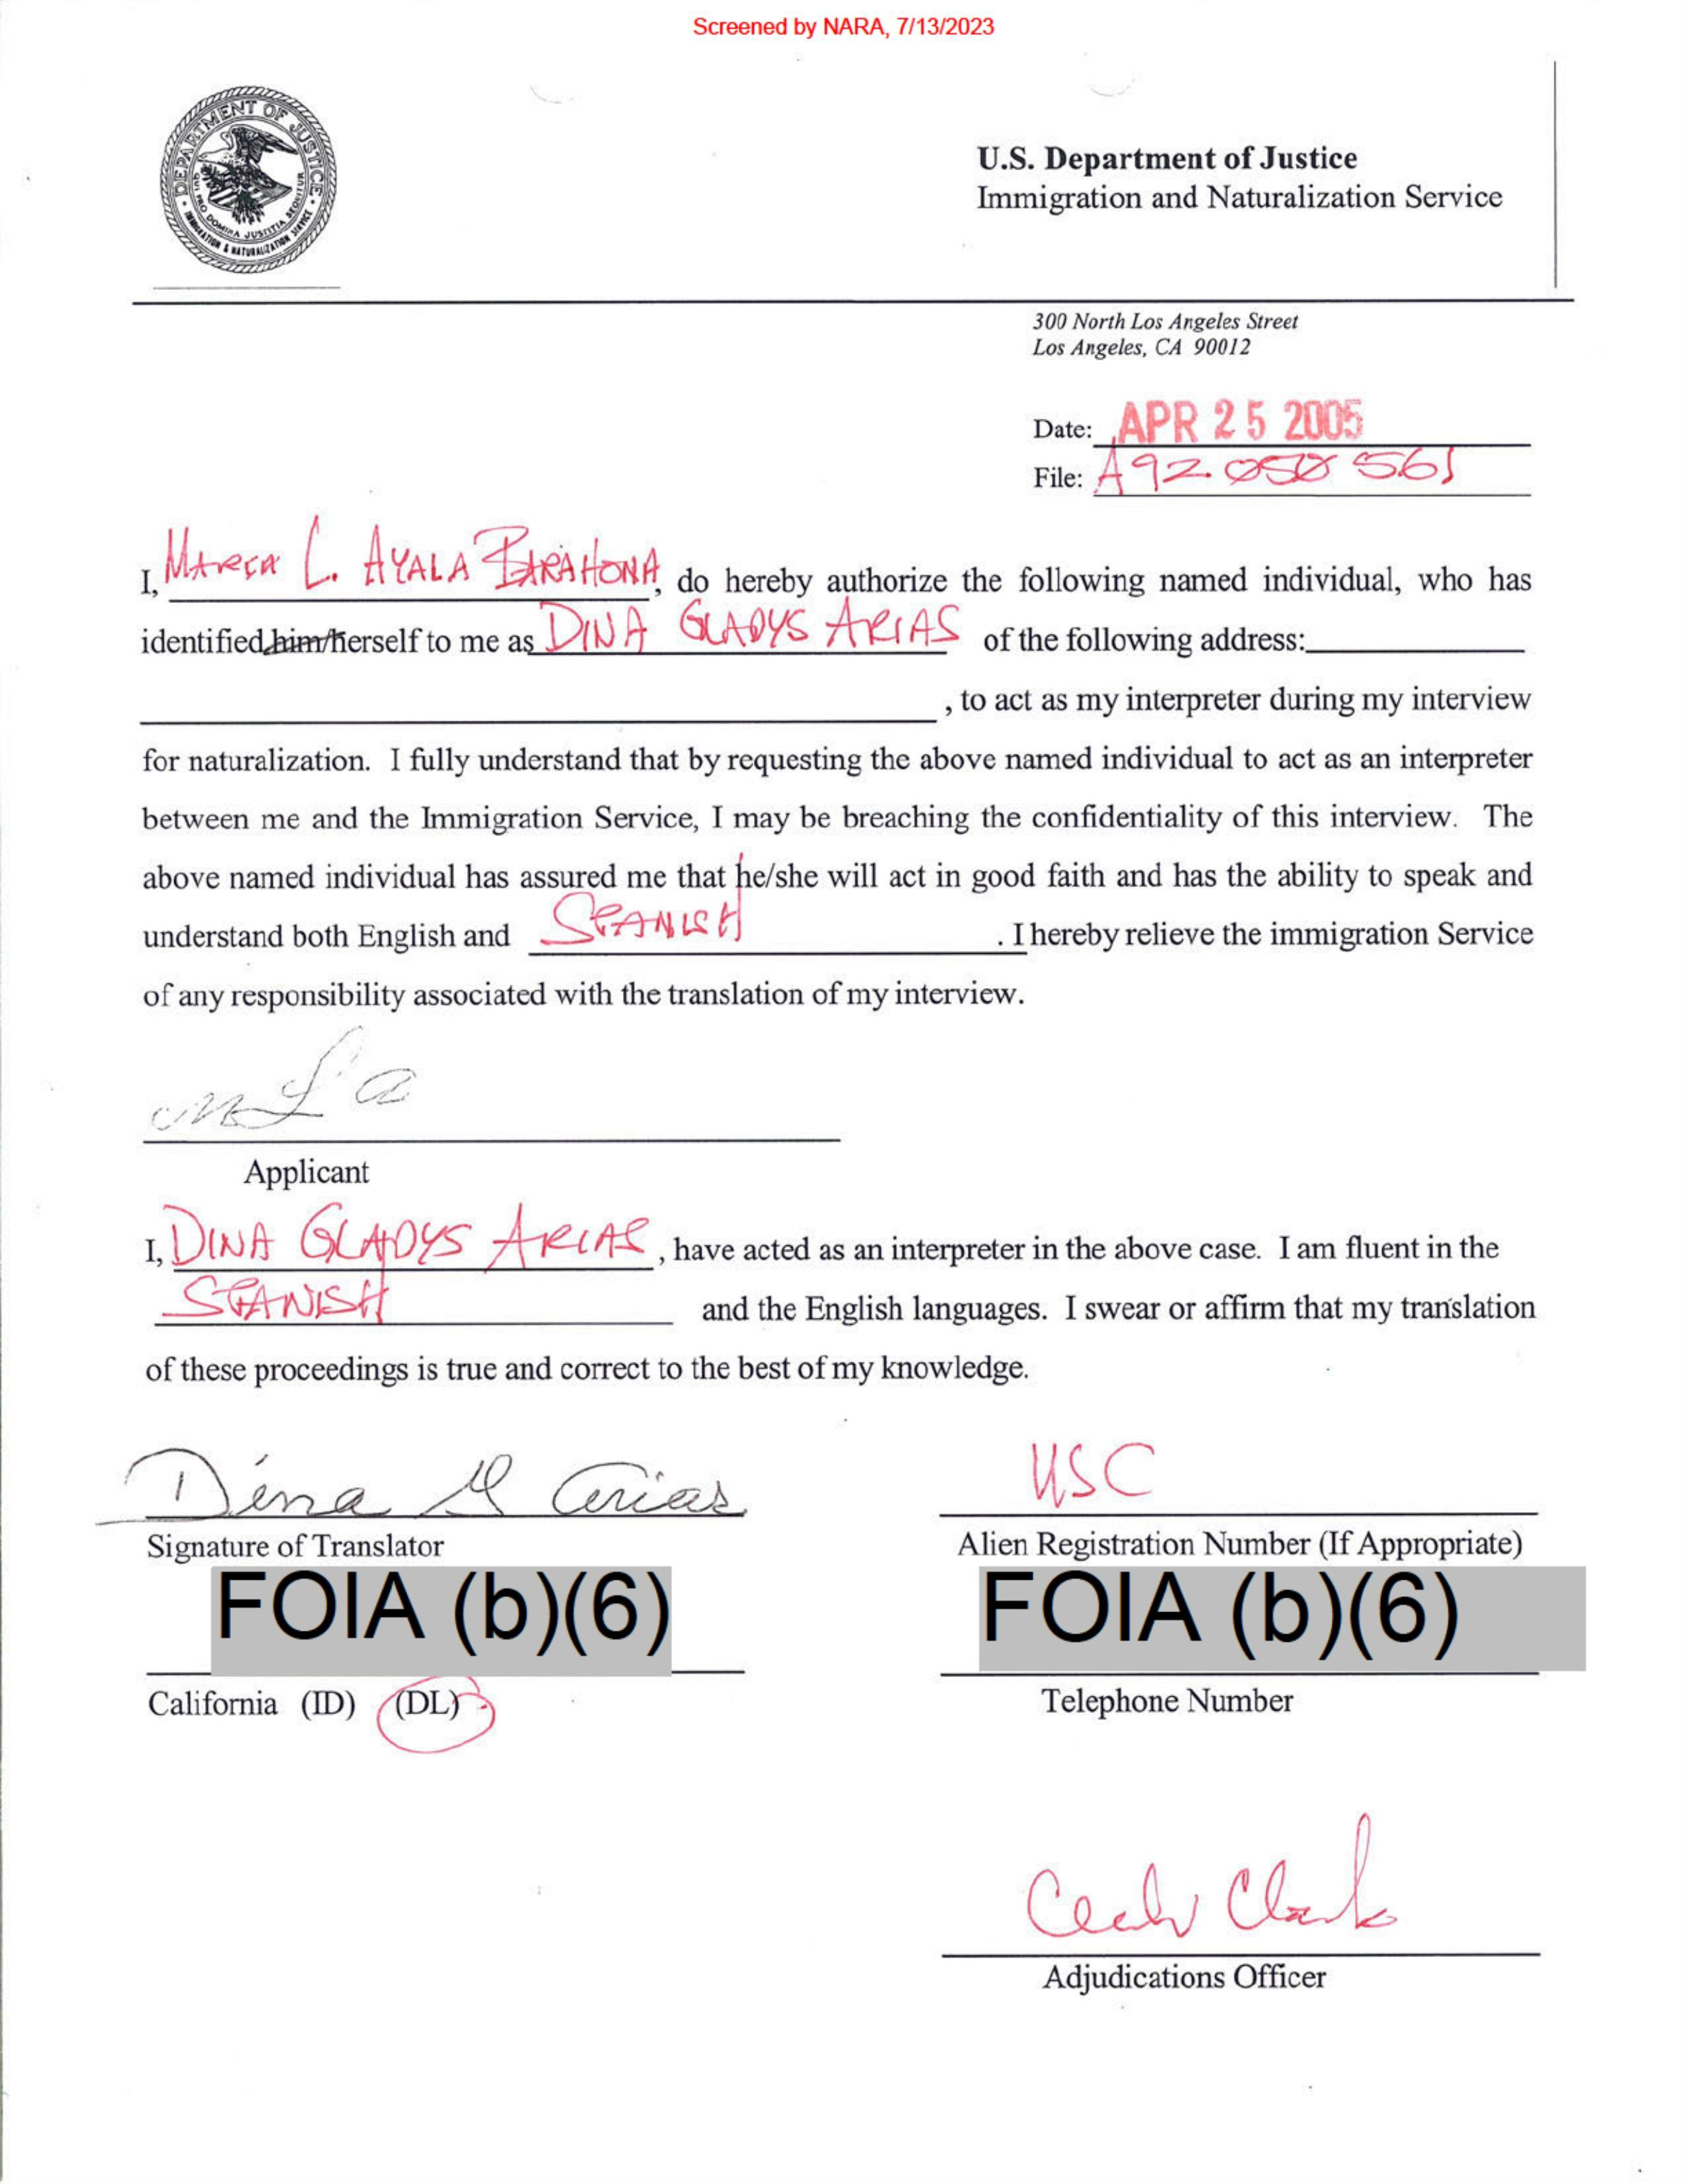 Screened by NARA, 7/13/2023
DEPARTMENT OF JUSTICE
QUI PRO DOMINA JUSTITIA SEQUITUR
IMMIGRATION & NATURALIZATION SERVICE
U.S. Department of Justice
Immigration and Naturalization Service
300 North Los Angeles Street
Los Angeles, CA 90012
Date: APR 25 2005
File: A92 050 561
I, L. AYALA BARAHONA, do hereby authorize the following named individual, who has
identified him/herself to me as DINA GLADYS ARIAS of the following address:
, to act as my interpreter during my interview
for naturalization. I fully understand that by requesting the above named individual to act as an interpreter
between me and the Immigration Service, I may be breaching the confidentiality of this interview. The
above named individual has assured me that he/she will act in good faith and has the ability to speak and
understand both English and SPANISH . I hereby relieve the immigration Service
of any responsibility associated with the translation of my interview.
Applicant
I, DINA GLADYS ARIAS, have acted as an interpreter in the above case. I am fluent in the
SPANISH and the English languages. I swear or affirm that my translation
of these proceedings is true and correct to the best of my knowledge.
Dina G Arias USC
Signature of Translator Alien Registration Number (If Appropriate)
FOIA (b)(6) FOIA (b)(6)
California (ID) (DL) Telephone Number
Clark
Adjudications Officer